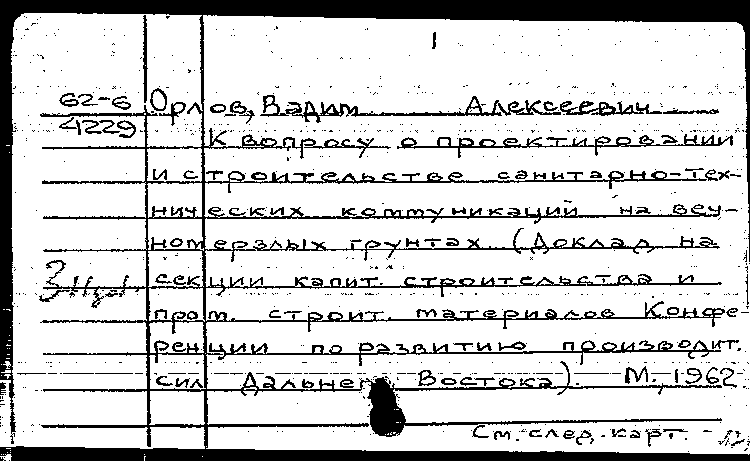 1
62-6 Орлов, Вадим Алексеевич
4229
К вопросу о проектировании
и строительстве санитарно-тех-
нических коммуникаций на веч-
номерзлых грунтах (Доклад на
секции капит. строительства и
пром. строит. материалов Конфе
ренции по развитию производит.
сил Дальнего Востока). М., 1962
См. след. карт.